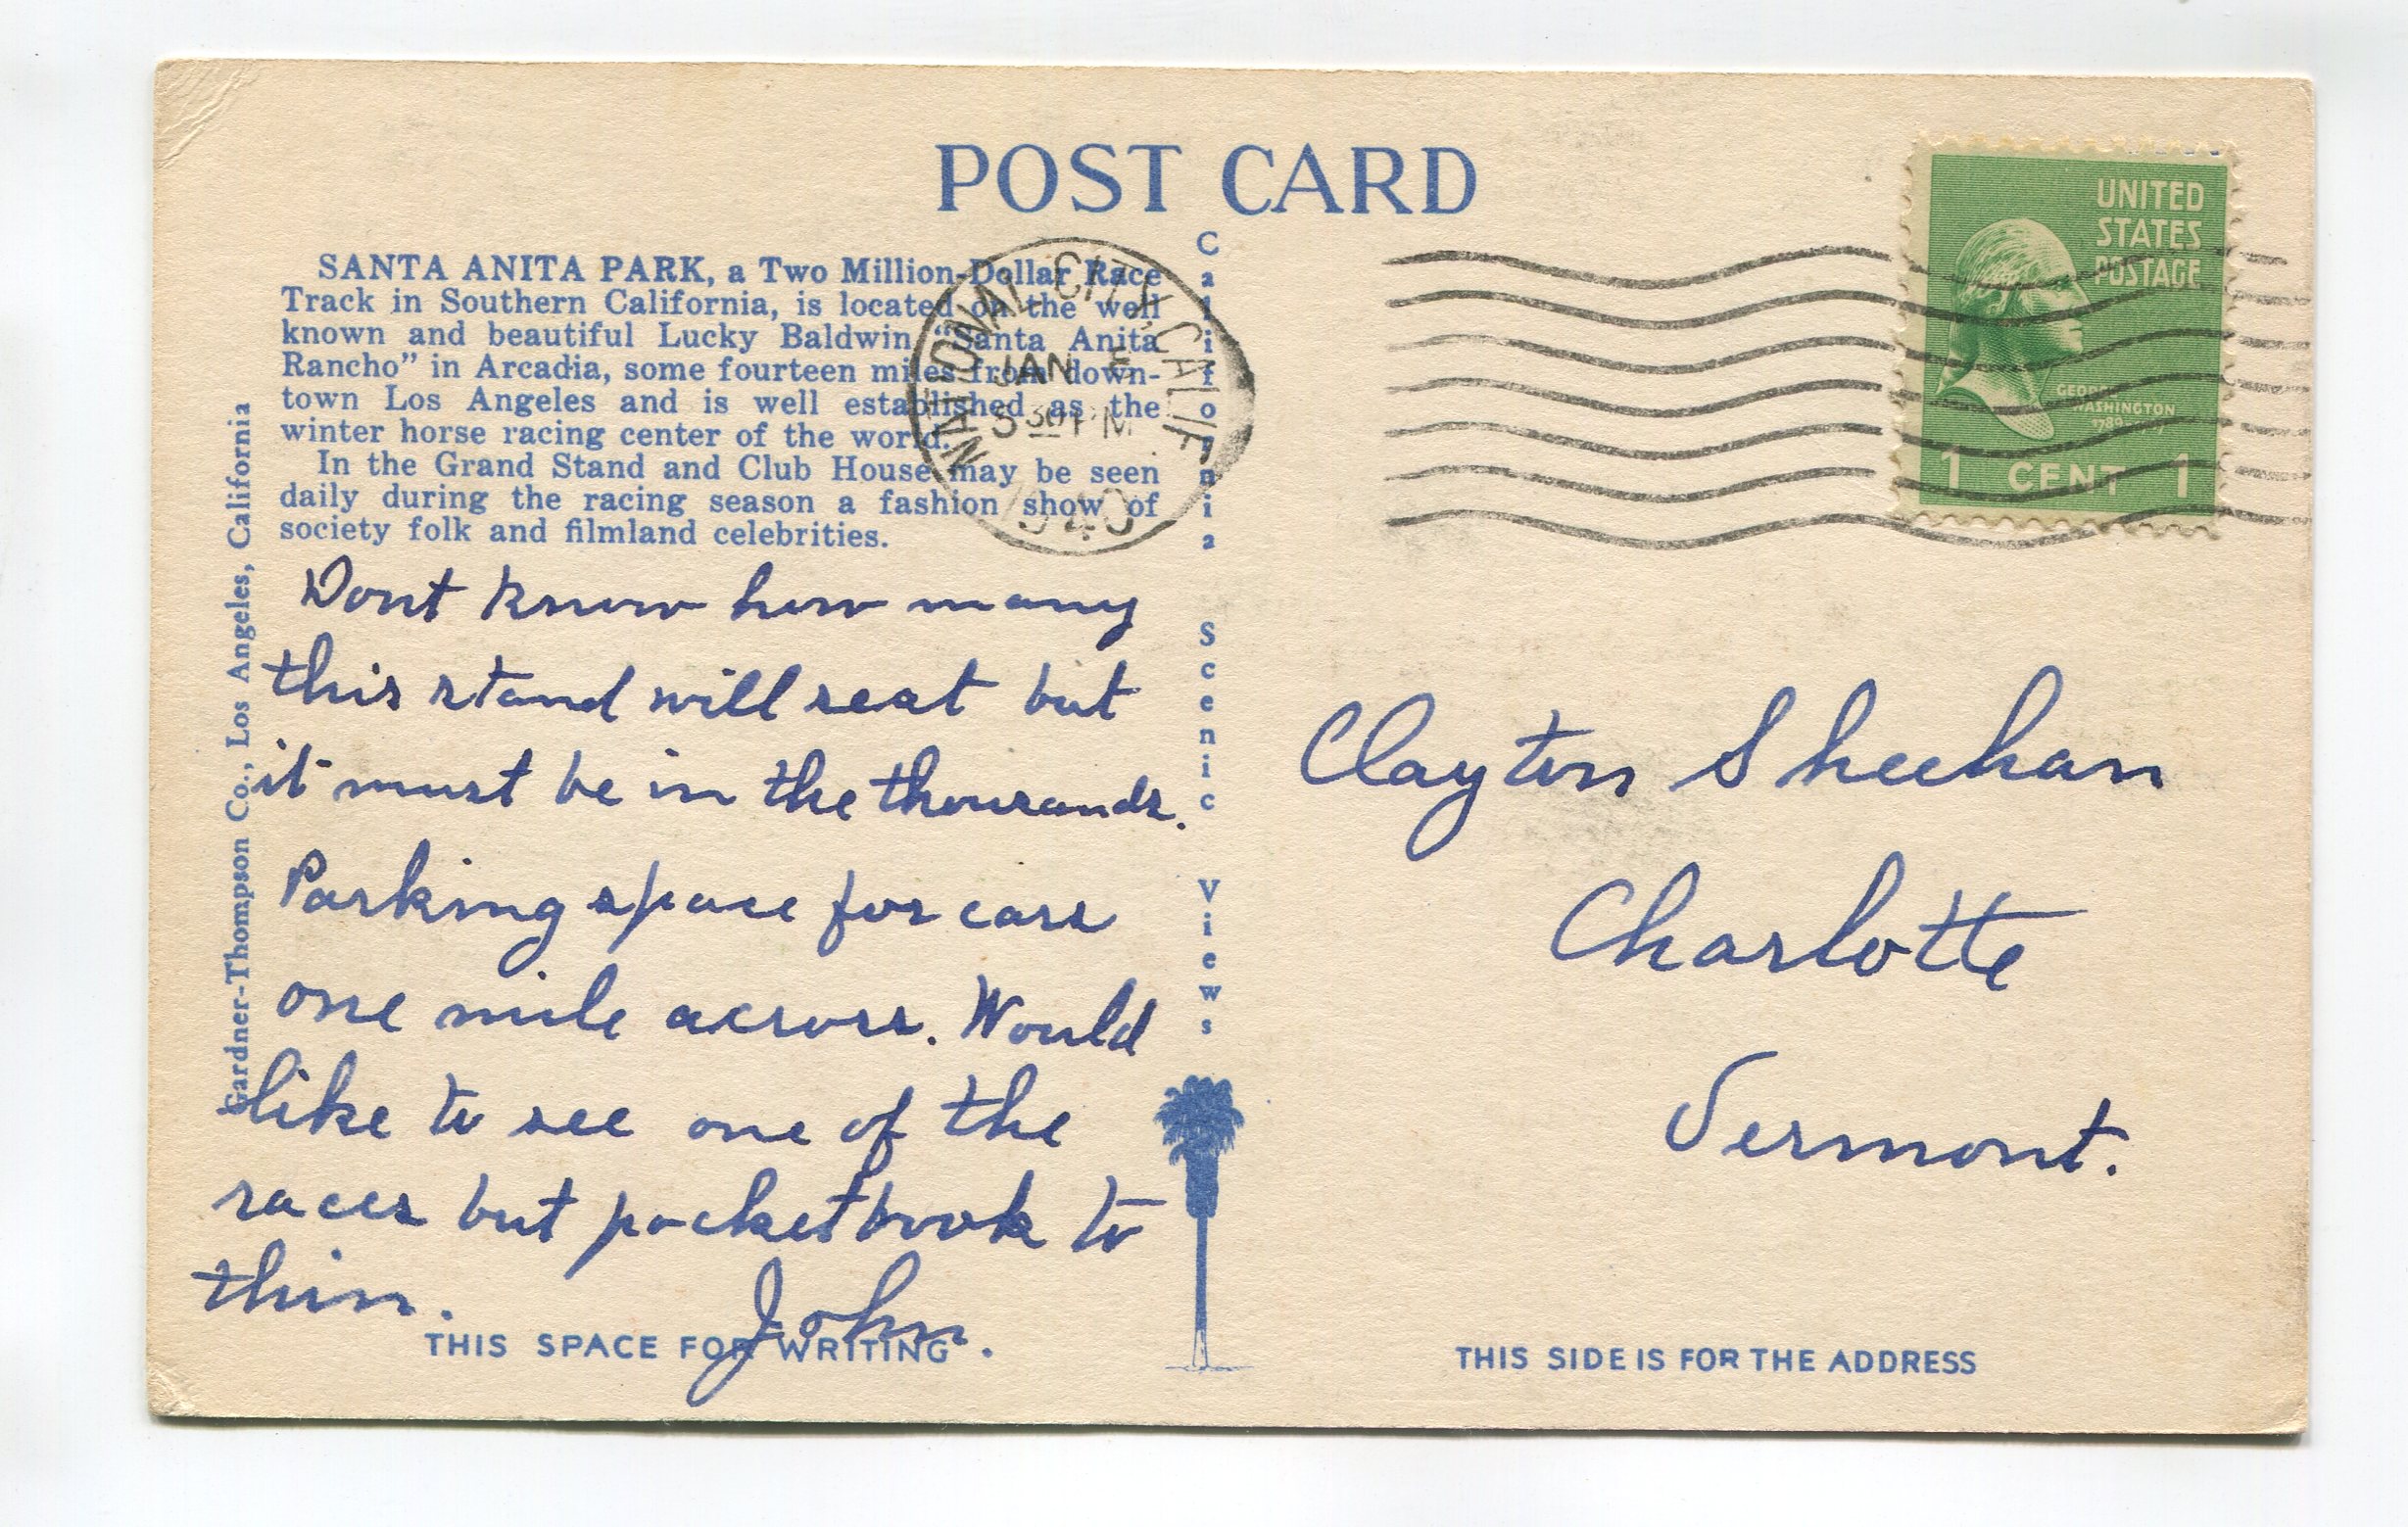 POST CARD
SANTA ANITA PARK, a Two Million-Dollar Race
Track in Southern California, is located on the well
known and beautiful Lucky Baldwin "Santa Anita
Rancho" in Arcadia, some fourteen miles from down-
town Los Angeles and is well established as the
winter horse racing center of the world.
In the Grand Stand and Club House may be seen
daily during the racing season a fashion show of
society folk and filmland celebrities.
Dont know how many
this stand will seat but
it must be in the thousands.
Parking space for cars
one mile across. Would
like to see one of the
races but pocketbook to
thin.
John.
THIS SPACE FOR WRITING
Gardner-Thompson Co., Los Angeles, California
California Scenic Views
NATIONAL CITY, CALIF.
JAN
5 30 PM
1940
UNITED
STATES
POSTAGE
GEORGE
WASHINGTON
1 CENT 1
Clayton Sheehan
Charlotte
Vermont.
THIS SIDE IS FOR THE ADDRESS